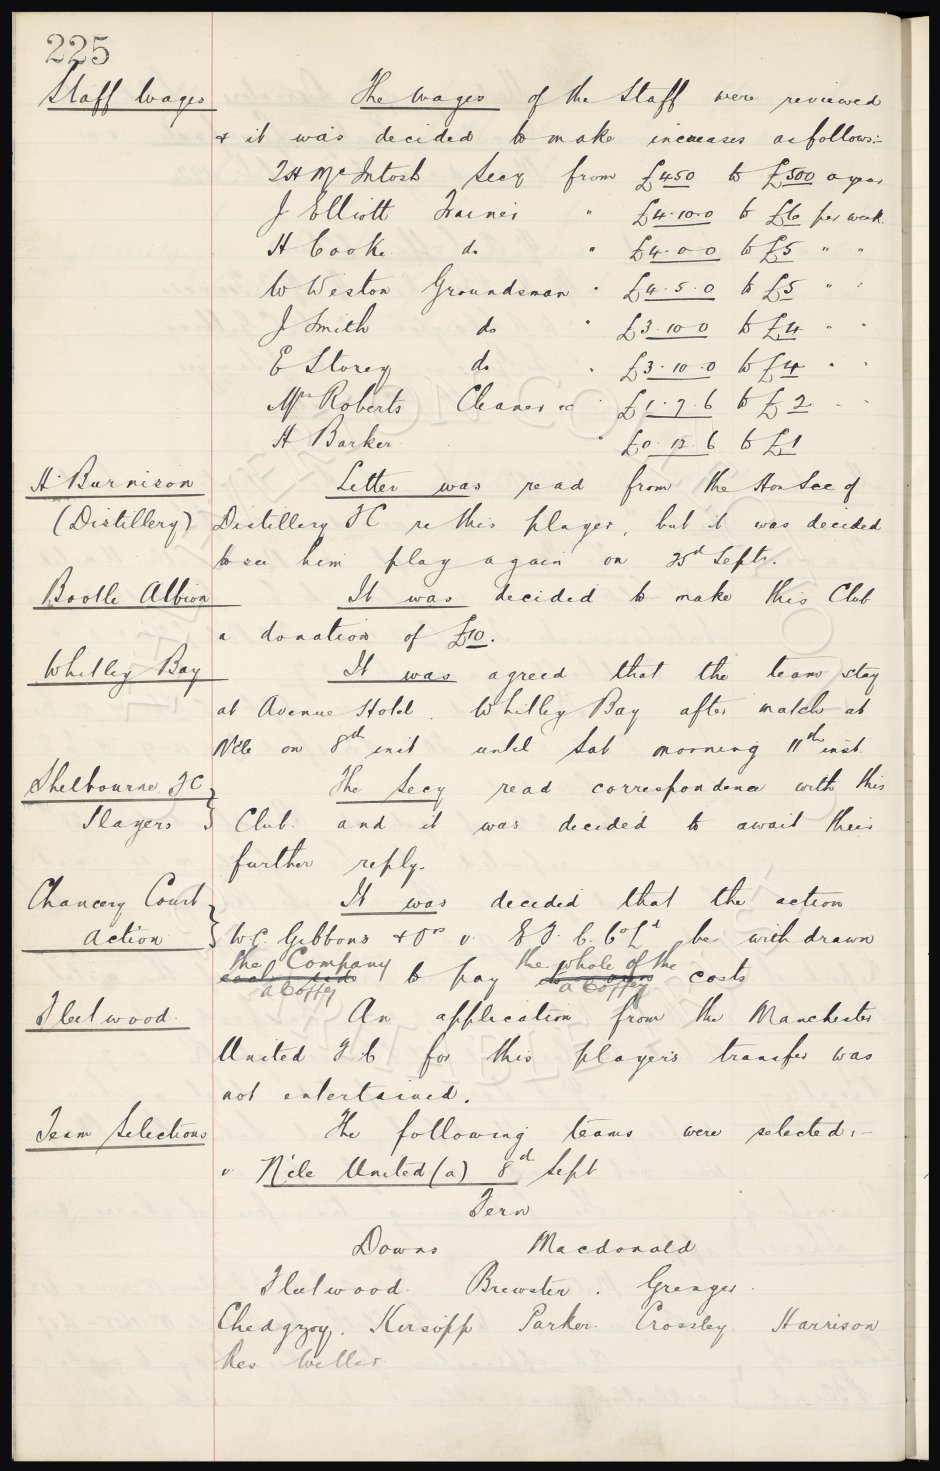 225
Staff Wages The Wages of the Staff were reviewed
& it was decided to make increases as follows:-
T H McIntosh Secy from £450 to £500 a year
J Elliott Trainer " £4.10.0 to £6 per week
H Cooke do " £4.0.0 to £5 " "
W Weston Groundsman " £4.5.0 to £5 " "
J Smith do " £3.10.0 to £4 " "
E Storey do " £3.10.0 to £4 " "
Mrs Roberts Cleaner &c " £1.7.6 to £2 " "
H Barker " £0.12.6 to £1
H. Burnison Letter was read from the Hon Sec of
(Distillery) Distillery FC re this player, but it was decided
to see him play again on 25d Sept.
Bootle Albion It was decided to make this Club
a donation of £10.
Whitley Bay It was agreed that the team stay
at Avenue Hotel. Whitley Bay after match at
N'cle on 8th inst until Sat morning 11th inst
Shelbourne FC The Secy read correspondence with this
Players Club. and it was decided to await their
further reply.
Chancery Court It was decided that the action
Action W.C. Gibbons & Ors v. E F. C. Co Ld be withdrawn
the Company to pay the whole of the costs
a Coffey a Coffey
Fleetwood. An application from the Manchester
United F C for this player's transfer was
not entertained.
Team Selections The following teams were selected:-
v N'cle United (a) 8d Sept
Fern
Downs Macdonald
Fleetwood. Brewster. Grenyer.
Chedgzoy. Kirsopp Parker. Crossley. Harrison
Res Weller